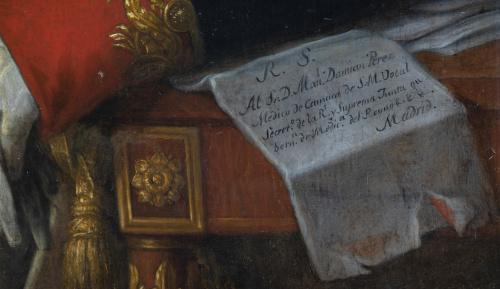 R. S.
Al Sr. D. Man.l Damian Perez
Médico de Camara de S. M. Vocal
Secret.o de la R.l y Suprema Junta gu
bern.a de Medic.a del Reyno &. &.
Madrid.